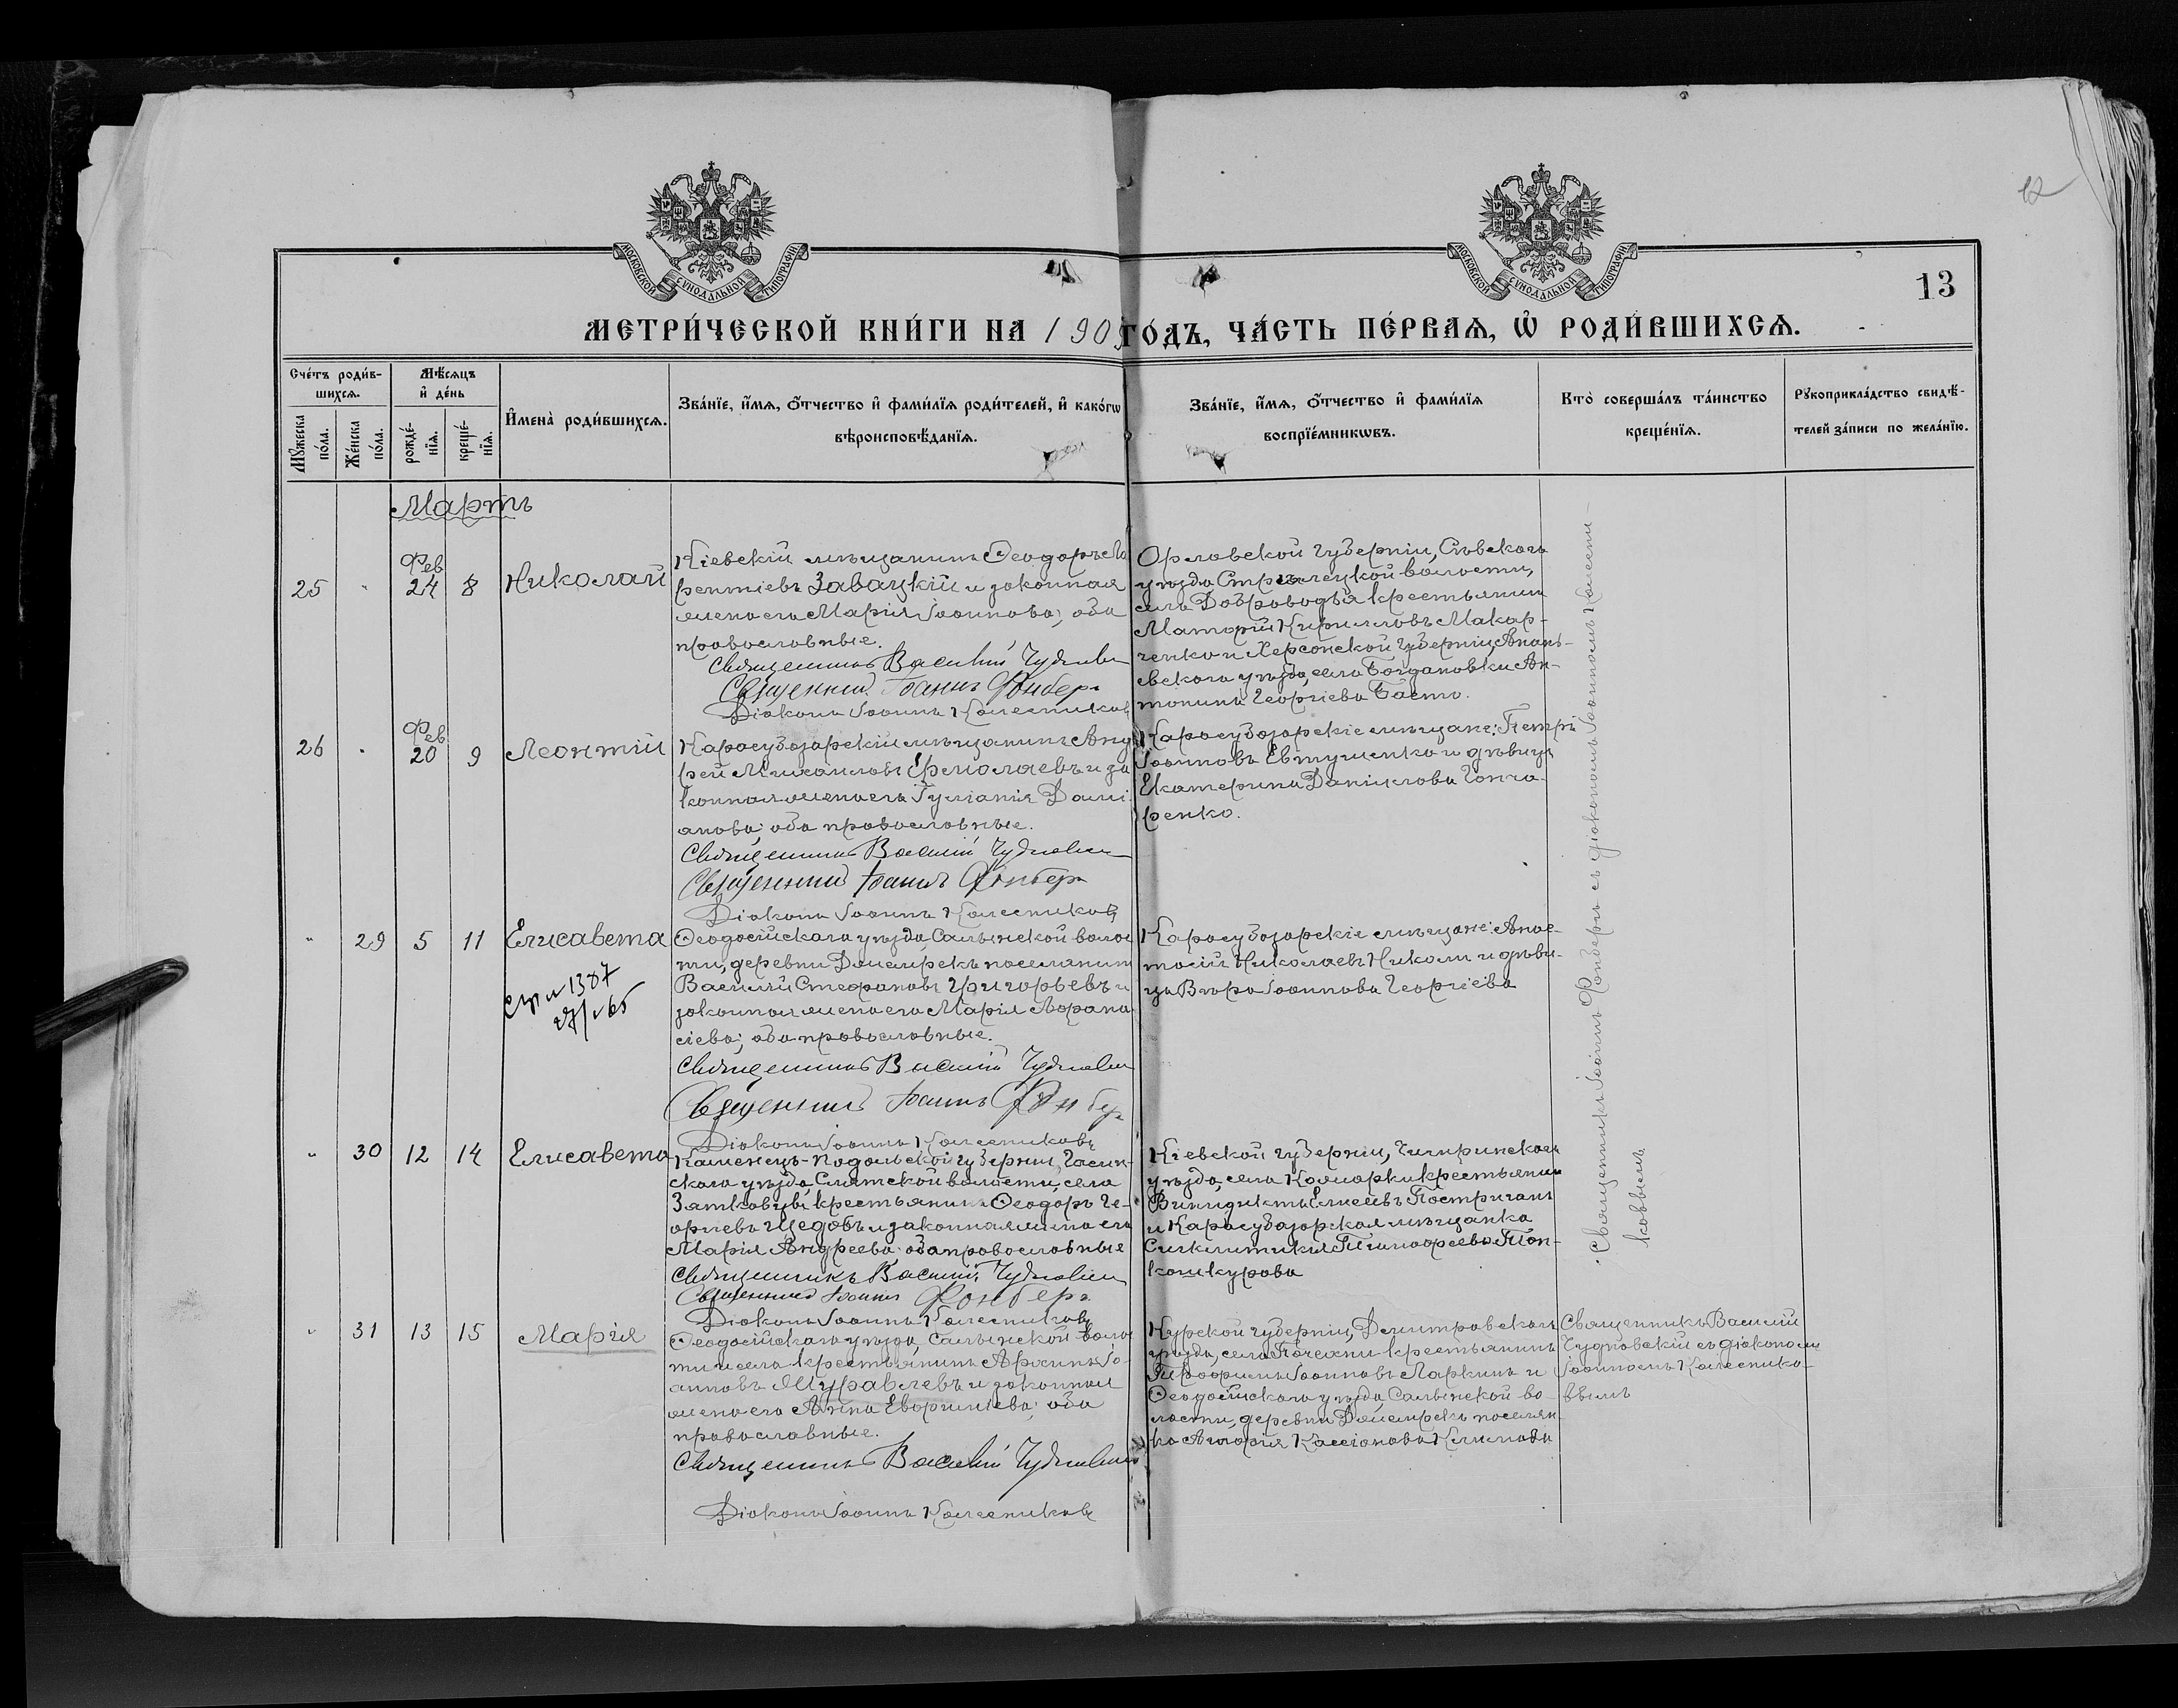 12
13
МОСКОВСКОЙ СУНОДАЛЬНОЙ ТИПОГРАФІИ
МОСКОВСКОЙ СУНОДАЛЬНОЙ ТИПОГРАФІИ
МЕТРИ́ЧЕСКОЙ КНИ́ГИ НА 190 ГО́ДЪ, ЧА́СТЬ ПЕ́РВАѦ, Ѡ҆ РОДИ́ВШИХСѦ.
Сче́тъ роди́в-
шихсѧ.
Мꙋ́жеска по́ла.
Же́нска по́ла.
Мѣ́сѧцъ
и҆ де́нь
рожде́-
нїѧ.
креще́-
нїѧ.
И҆мена̀ роди́вшихсѧ.
Зва́нїе, и҆́мѧ, ѻ҆́тчество и҆ фами́лїѧ роди́телей, и҆ како́гѡ
вѣроисповѣ́данїѧ.
Зва́нїе, и҆́мѧ, ѻ҆́тчество и҆ фами́лїѧ
воспрїе́мникѡвъ.
Кто̀ соверша́лъ та́инство
креще́нїѧ.
Рꙋкоприкла́дство свидѣ́-
телей за́писи по жела́нїю.
Мартъ
Фев
25 " 24 8 Николай
Кіевскій мѣщанинъ Ѳеодоръ Ло
рентіевъ Завацкій и законная
жена его Марія Іоаннова; оба
православные.
Священникъ Василій Чудновскій
Священникъ Іоаннъ Фонберг
Діаконъ Іоаннъ Колесниковъ
Орловской губерніи, Сѣвскаго
уѣзда Стрѣлецкой волости,
села Доброводья крестьянин
Кирилловъ Макар-
ченко и Херсонской губерніи, Анань-
евскаго уѣзда, села Богдановки Ан-
тонина Георгіева
Фев
26 " 20 9 Леонтій
Карасубазарскій мѣщанинъ Анд
рей Михаиловъ Ермолаевъ и за
конная жена его Іуліанія Дами
анова; оба православные.
Священникъ Василій Чудновскій
Священникъ Іоаннъ Фонберг
Діаконъ Іоаннъ Колесниковъ
Карасубазарскіе мѣщане: Петръ
Іоанновъ Евтушенко и дѣвица
Екатерина Даніилова Гонча-
ренко.
" 29 5 11 Елисавета
1387
Ѳеодосійскаго уѣзда, Салынской волос
ти, деревни поселянин
Василій Стефановъ Григорьевъ и
законная жена его Марія Аѳана
сіева; оба православные.
Священникъ Василій Чудновскій
Священникъ Іоаннъ Фонберг
Діаконъ Іоаннъ Колесниковъ
Карасубазарскіе мѣщане: Анас-
тасій Николаевъ Николи и дѣви-
ца Вѣра Іоаннова Георгіева
" 30 12 14 Елисавета
Каменецъ-Подольской губерніи,
скаго уѣзда, волости, села
Затковцы крестьянинъ Ѳеодоръ Ге-
оргіевъ Щедовъ и законная жена его
Марія Андреева; оба православные
Священникъ Василій Чудновскій
Священникъ Іоаннъ Фонберг
Діаконъ Іоаннъ Колесниковъ
Кіевской губерніи, Чигиринскаго
уѣзда, села крестьянин
Елисеевъ Постриганъ
и Карасубазарская мѣщанка
Синклитикія Тимофеева Топ-
кашкурова
Священникъ Іоаннъ Фонбергъ съ діакономъ Іоанномъ Колесни-
ковымъ
" 31 13 15 Марія
Ѳеодосійскаго уѣзда, Салынской волос
ти и села крестьянинъ Архипъ Іо-
анновъ Журавлевъ и законная
жена его Анна Евфиміева; оба
православные.
Священникъ Василій Чудновскій
Діаконъ Іоаннъ Колесниковъ
Курской губерніи, Дмитровскаго
уѣзда, села крестьянинъ
Трофимъ Іоанновъ Ларкинъ и
Ѳеодосійскаго уѣзда, Салынской во-
лости, деревни поселян
ка Кассіанова Климова
Священникъ Василій
Чудновскій съ діакономъ
Іоанномъ Колеснико-
вымъ